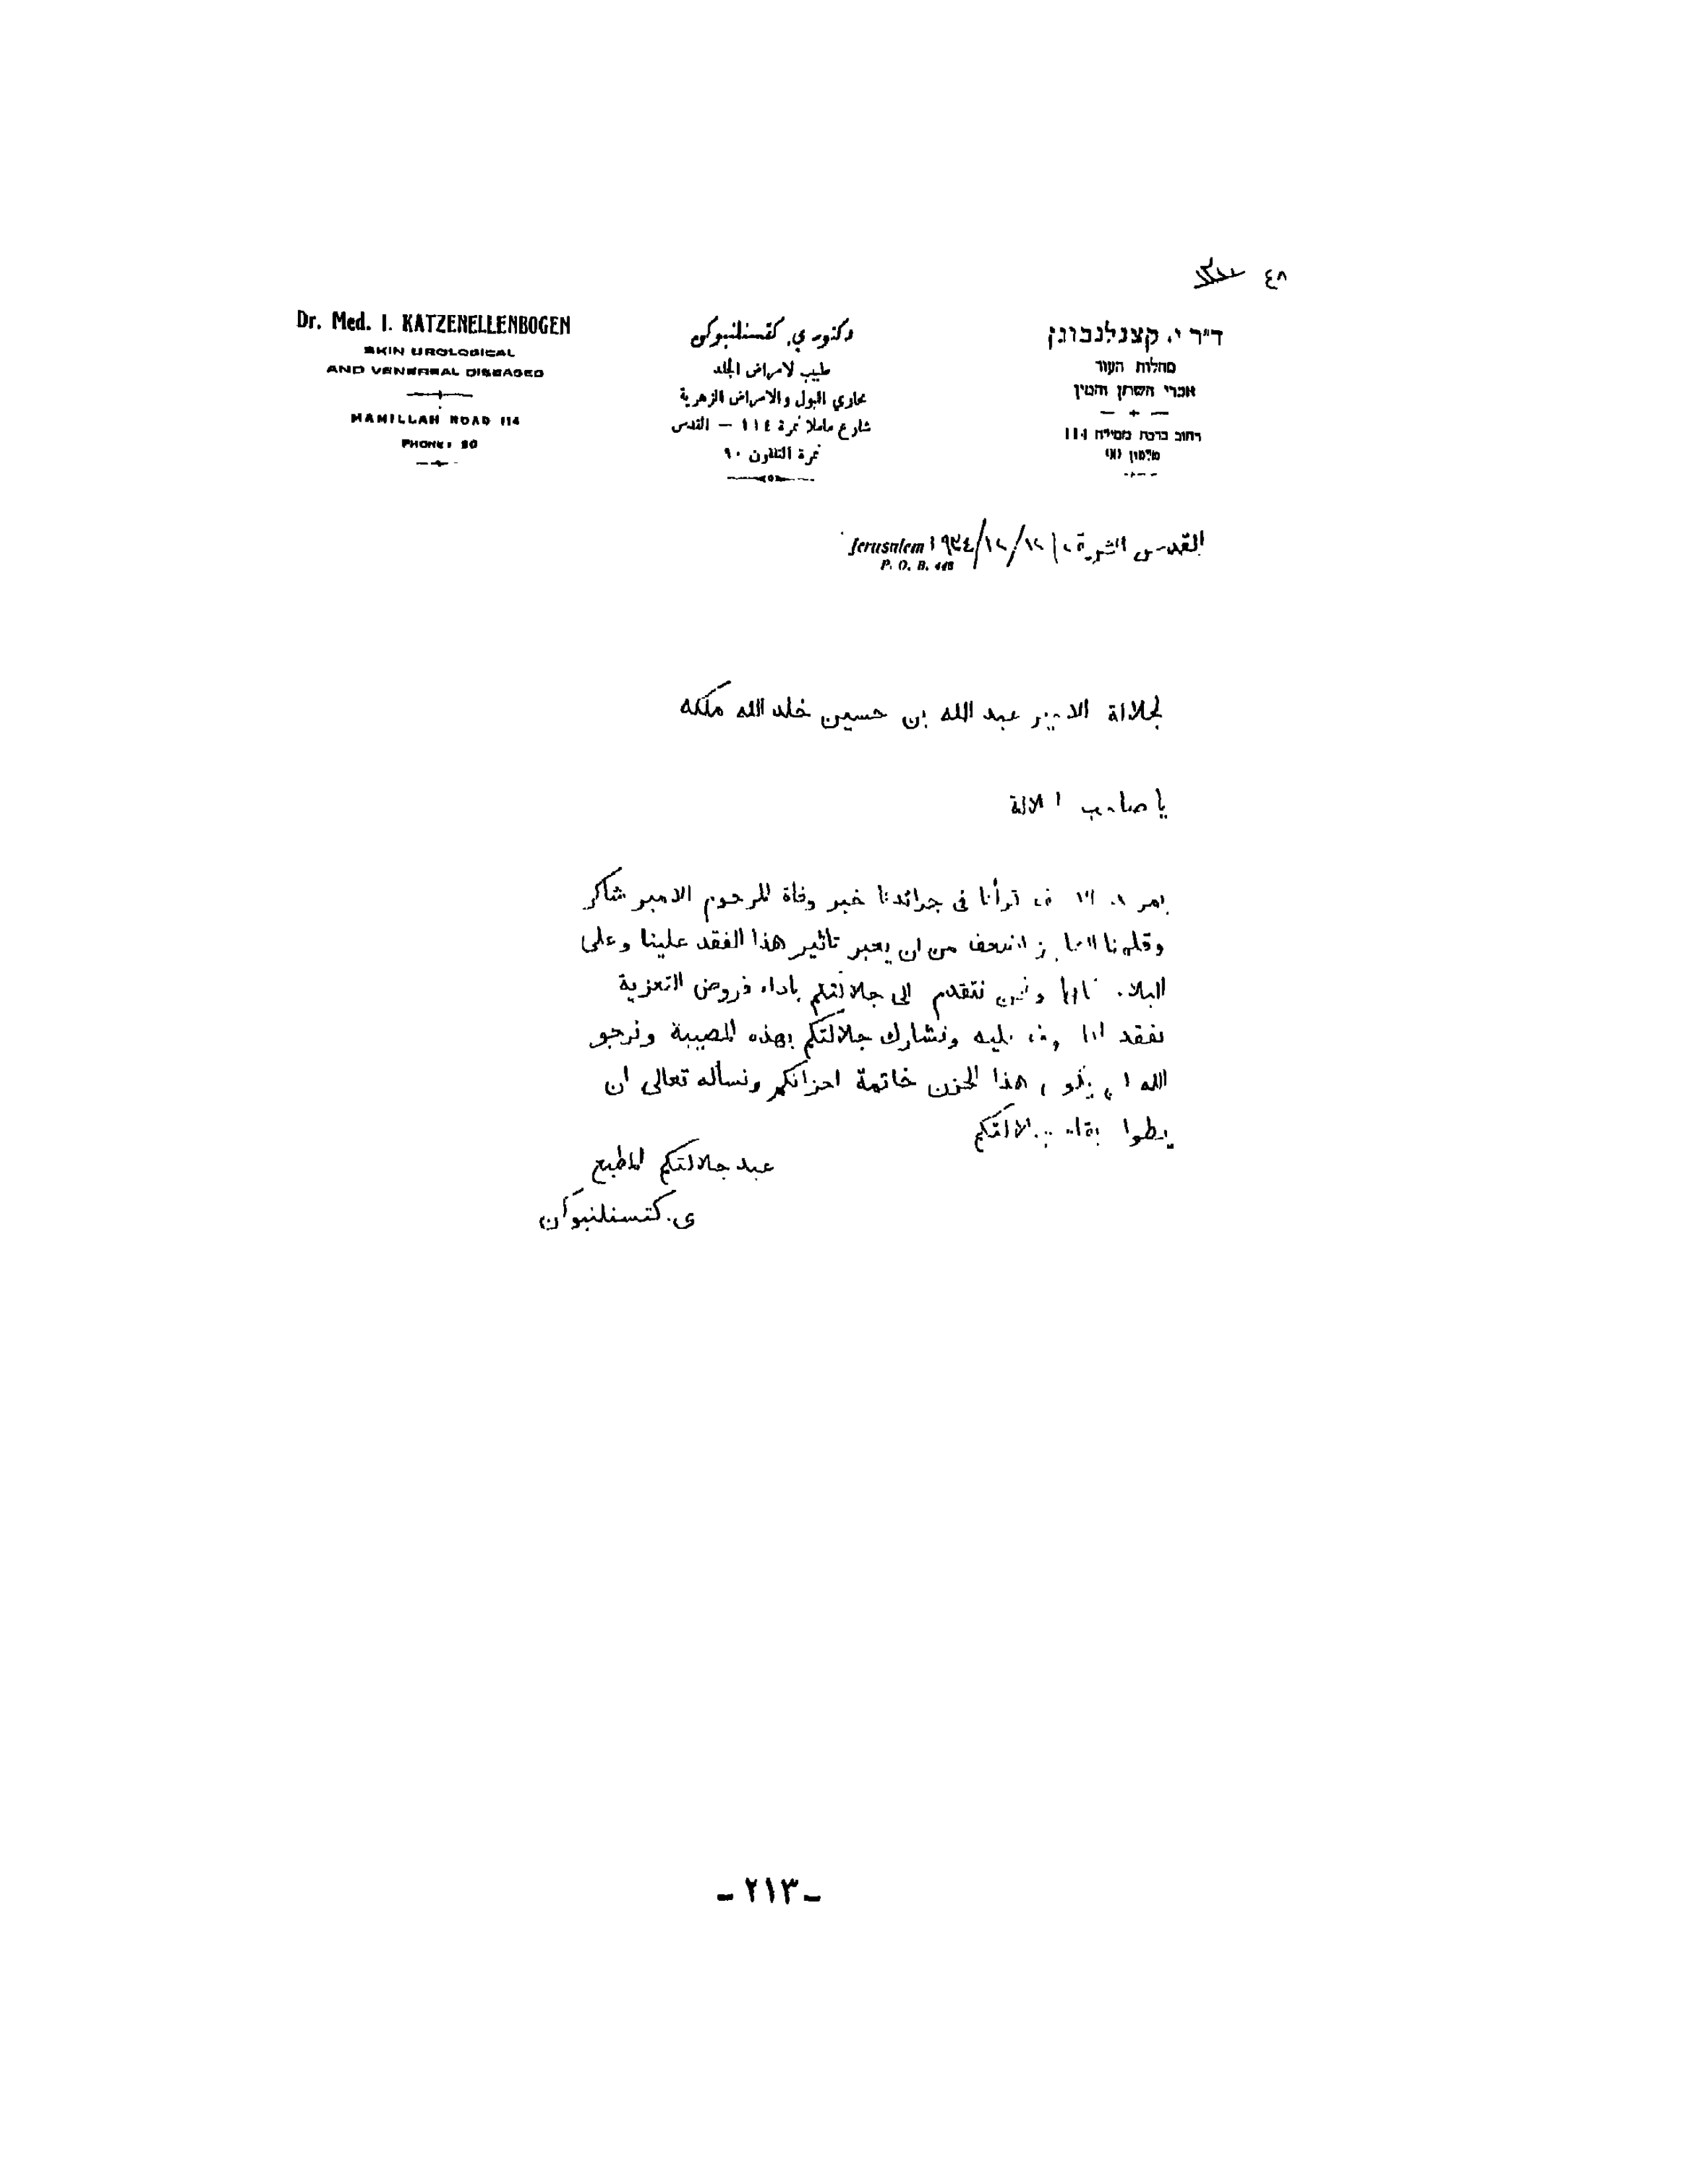 ٤٨
Dr. Med. I. KATZENELLENBOGEN
SKIN UROLOGICAL
AND VENEREAL DISEASES
MAMILLAH ROAD 114
PHONE: 90
دكتور ي. كتسنلنبوكن
طبيب لامراض الجلد
مجاري البول والامراض الزهرية
شارع ماملا نمرة ١١٤ — القدس
نمرة التلفون ٩٠
ד״ר י. קצנלנבוגן
מחלות העור
אברי השתן והמין
רחוב ברכת ממילה 114
טלפון 90
القدس الشريف Jerusalem ١٩٣٤/١٢/١٢
P. O. B. 448
لجلالة الامير عبد الله بن حسين خلد الله ملكه
يا صاحب
قرأنا في جرائدنا خبر وفاة المرحوم الامير شاكر
من ان يعبر تاثير هذا الفقد علينا وعلى
ونحن نتقدم الى جلالتكم باداء فروض التعزية
بفقد ونشارك جلالتكم بهذه المصيبة ونرجو
الله هذا الحزن خاتمة احزانكم ونسأله تعالى ان
جلالتكم
عبد جلالتكم المطيع
ي. كتسنلنبوكن
- ٢١٣ -